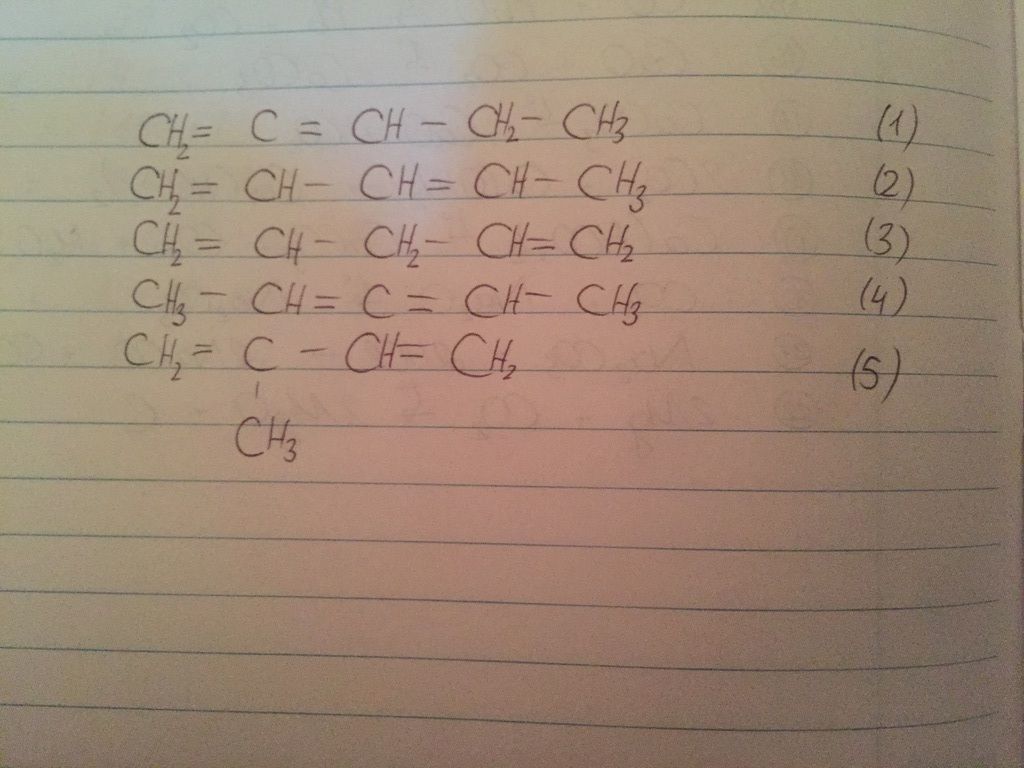 CH₂ = C = CH – CH₂ – CH₃ (1)
CH₂ = CH – CH = CH – CH₃ (2)
CH₂ = CH – CH₂ – CH = CH₂ (3)
CH₃ – CH = C = CH – CH₃ (4)
CH₂ = C – CH = CH₂ (5)
|
CH₃